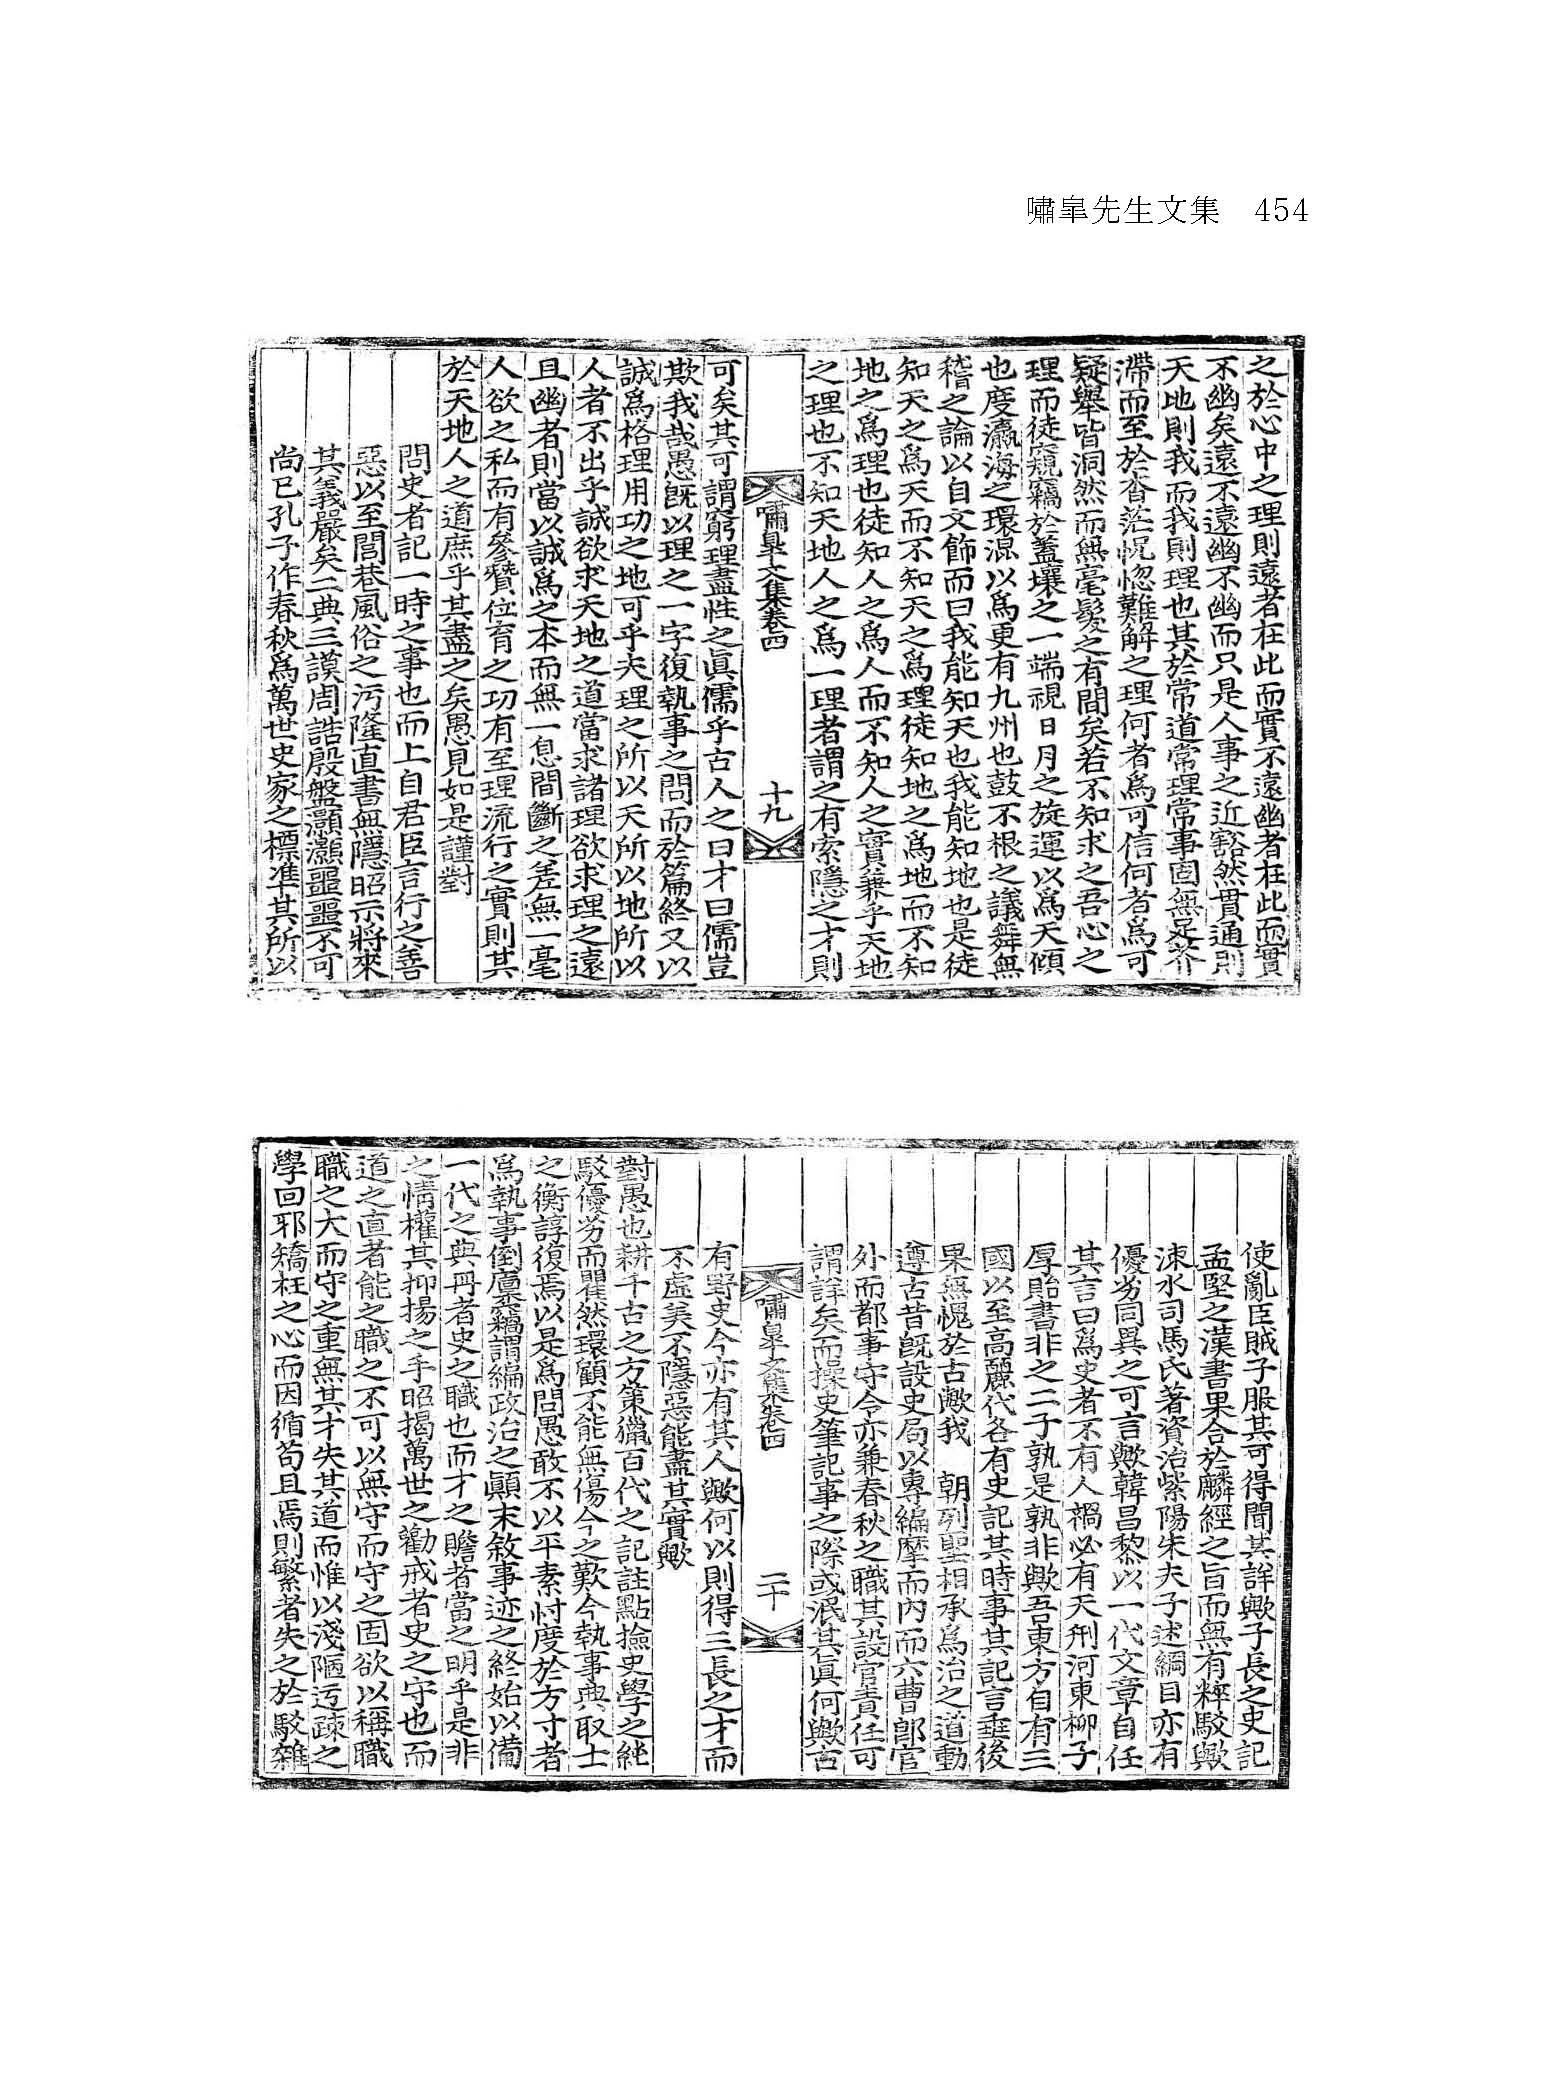 嘯皐先生文集 454
之於心中之理則遠者在此而實不遠幽者在此而實
不幽矣遠不遠幽不幽而只是人事之近豁然貫通則
天地則我而我則理也其於常道常理常事固無足芥
滯而至於杳茫怳惚難解之理何者爲可信何者爲可
疑擧皆洞然而無毫髮之有間矣若不知求之吾心之
理而徒窺竊於蓋壤之一端視日月之旋運以爲天傾
也度瀛海之環混以爲更有九州也鼓不根之議舞無
稽之論以自文飾而曰我能知天也我能知地也是徒
知天之爲天而不知天之爲理徒知地之爲地而不知
地之爲理也徒知人之爲人而不知人之實兼乎天地
之理也不知天地人之爲一理者謂之有索隱之才則
嘯皐文集卷四
十九
可矣其可謂窮理盡性之眞儒乎古人之曰才曰儒豈
欺我哉愚旣以理之一字復執事之問而於篇終又以
誠爲格理用功之地可乎夫理之所以天所以地所以
人者不出乎誠欲求天地之道當求諸理欲求理之遠
且幽者則當以誠爲之本而無一息間斷之差無一毫
人欲之私而有參贊位育之功有至理流行之實則其
於天地人之道庶乎其盡之矣愚見如是謹對
問史者記一時之事也而上自君臣言行之善
惡以至閭巷風俗之汚隆直書無隱昭示將來
其義嚴矣二典三謨周誥殷盤灝灝噩噩不可
尙已孔子作春秋爲萬世史家之標準其所以
使亂臣賊子服其可得聞其詳歟子長之史記
孟堅之漢書果合於麟經之旨而無有粹駁歟
涑水司馬氏著資治紫陽朱夫子述綱目亦有
優劣同異之可言歟韓昌黎以一代文章自任
其言曰爲史者不有人禍必有天刑河東柳子
厚貽書非之二子孰是孰非歟吾東方自有三
國以至高麗代各有史記其時事其記言垂後
果無愧於古歟我 朝列聖相承爲治之道動
遵古昔旣設史局以專編摩而內而六曹郎官
外而都事守令亦兼春秋之職其設官責任可
謂詳矣而操史筆記事之際或泯其眞何歟古
嘯皐文集卷四
二十
有野史今亦有其人歟何以則得三長之才而
不虛美不隱惡能盡其實歟
對愚也耕千古之方策獵百代之記註點撿史學之純
駁優劣而瞿然環顧不能無傷今之歎今執事典取士
之衡諄復焉以是爲問愚敢不以平素忖度於方寸者
爲執事倒廩竊謂編政治之顚末敘事迹之終始以備
一代之典冊者史之職也而才之贍者當之明乎是非
之情權其抑揚之手昭揭萬世之勸戒者史之守也而
道之直者能之職之不可以無守而守之固欲以稱職
職之大而守之重無其才失其道而惟以淺陋迃疎之
學回邪矯枉之心而因循苟且焉則繁者失之於駁雜